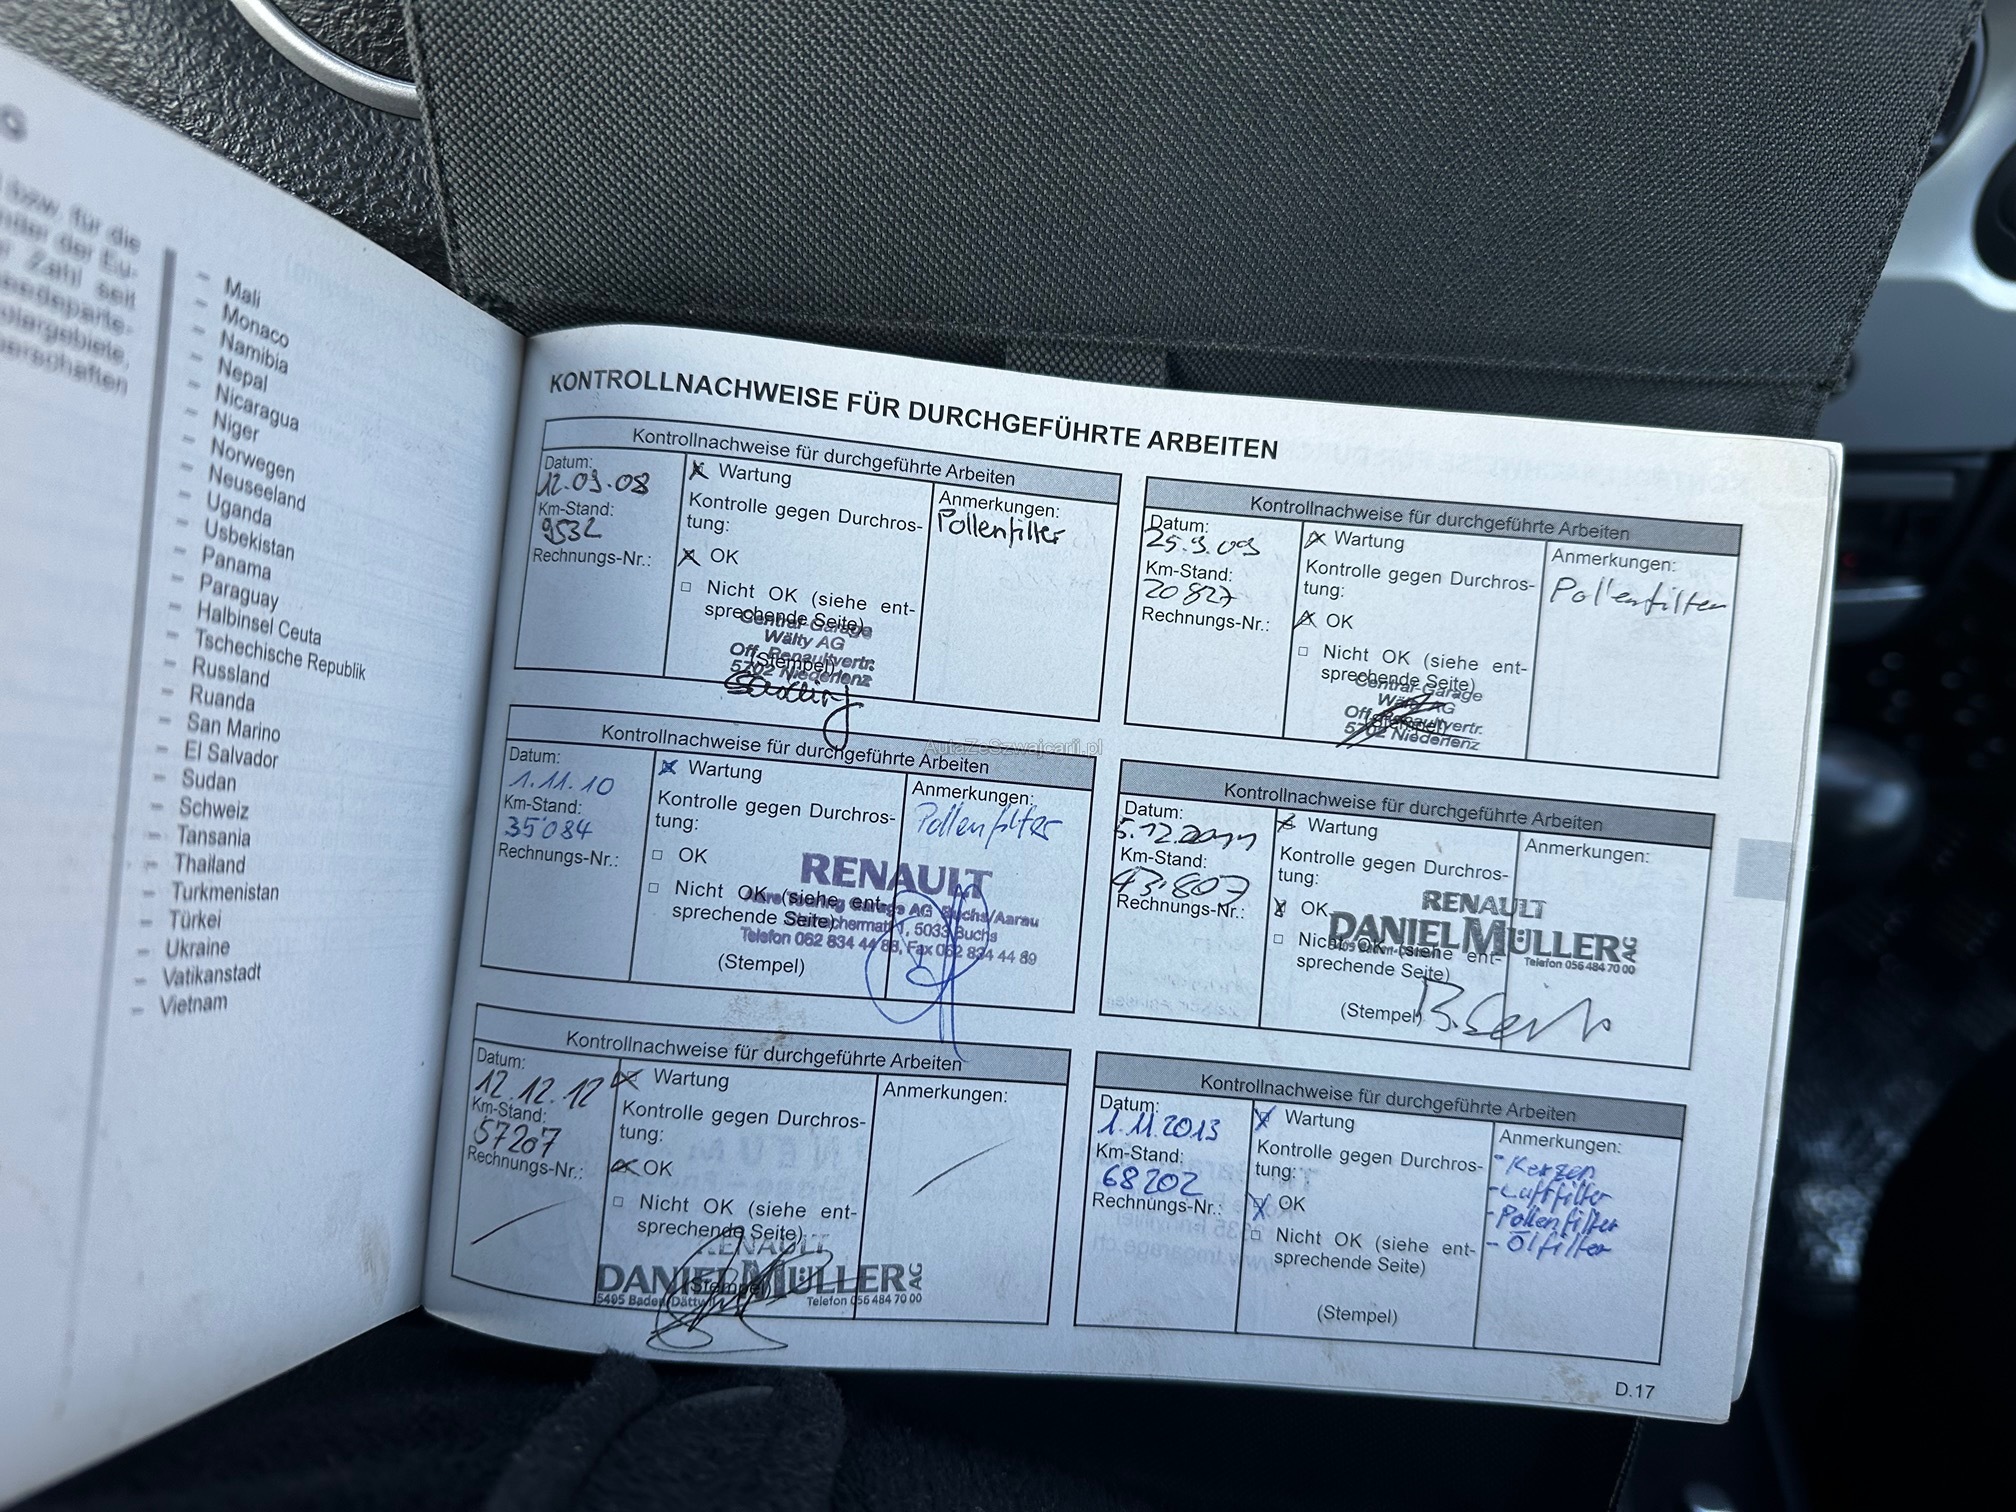 G
bzw. für die
nder der Eu-
r Zahl seit
seedeparte-
olargebiete,
perschaften
– Mali
– Monaco
– Namibia
– Nepal
– Nicaragua
– Niger
– Norwegen
– Neuseeland
– Uganda
– Usbekistan
– Panama
– Paraguay
– Halbinsel Ceuta
– Tschechische Republik
– Russland
– Ruanda
– San Marino
– El Salvador
– Sudan
– Schweiz
– Tansania
– Thailand
– Turkmenistan
– Türkei
– Ukraine
– Vatikanstadt
– Vietnam
KONTROLLNACHWEISE FÜR DURCHGEFÜHRTE ARBEITEN
Kontrollnachweise für durchgeführte Arbeiten
Datum:
12.03.08
Km-Stand:
9532
Rechnungs-Nr.:
Wartung
Kontrolle gegen Durchros-
tung:
OK
Nicht OK (siehe ent-
sprechende Seite)
Central-Garage
Wälty AG
Off. Renaultvertr.
(Stempel)
5702 Niederlenz
Anmerkungen:
Pollenfilter
Kontrollnachweise für durchgeführte Arbeiten
Datum:
25.3.09
Km-Stand:
20827
Rechnungs-Nr.:
Wartung
Kontrolle gegen Durchros-
tung:
OK
Nicht OK (siehe ent-
sprechende Seite)
Central-Garage
Wälty AG
Off. Renaultvertr.
(Stempel)
5702 Niederlenz
Anmerkungen:
Pollenfilter
AutaZeSzwajcarii.pl
Kontrollnachweise für durchgeführte Arbeiten
Datum:
1.11.10
Km-Stand:
35'084
Rechnungs-Nr.:
Wartung
Kontrolle gegen Durchros-
tung:
OK
Nicht OK (siehe ent-
sprechende Seite)
RENAULT
Touring Garage AG Buchs/Aarau
1, 5033 Buchs
Telefon 062 834 44 88, Fax 062 834 44 89
(Stempel)
Anmerkungen:
Pollenfilter
Kontrollnachweise für durchgeführte Arbeiten
Datum:
5.12.2011
Km-Stand:
43.807
Rechnungs-Nr.:
Wartung
Kontrolle gegen Durchros-
tung:
OK
Nicht OK (siehe ent-
sprechende Seite)
RENAULT
DANIEL MÜLLER AG
Telefon 056 484 70 00
(Stempel)
Anmerkungen:
Kontrollnachweise für durchgeführte Arbeiten
Datum:
12.12.12
Km-Stand:
57207
Rechnungs-Nr.:
Wartung
Kontrolle gegen Durchros-
tung:
OK
Nicht OK (siehe ent-
sprechende Seite)
RENAULT
DANIEL MÜLLER AG
(Stempel)
5405 Baden-Dättwil Telefon 056 484 70 00
Anmerkungen:
Kontrollnachweise für durchgeführte Arbeiten
Datum:
1.11.2013
Km-Stand:
68202
Rechnungs-Nr.:
Wartung
Kontrolle gegen Durchros-
tung:
OK
Nicht OK (siehe ent-
sprechende Seite)
(Stempel)
Anmerkungen:
- Kerzen
- Luftfilter
- Pollenfilter
- Ölfilter
D.17